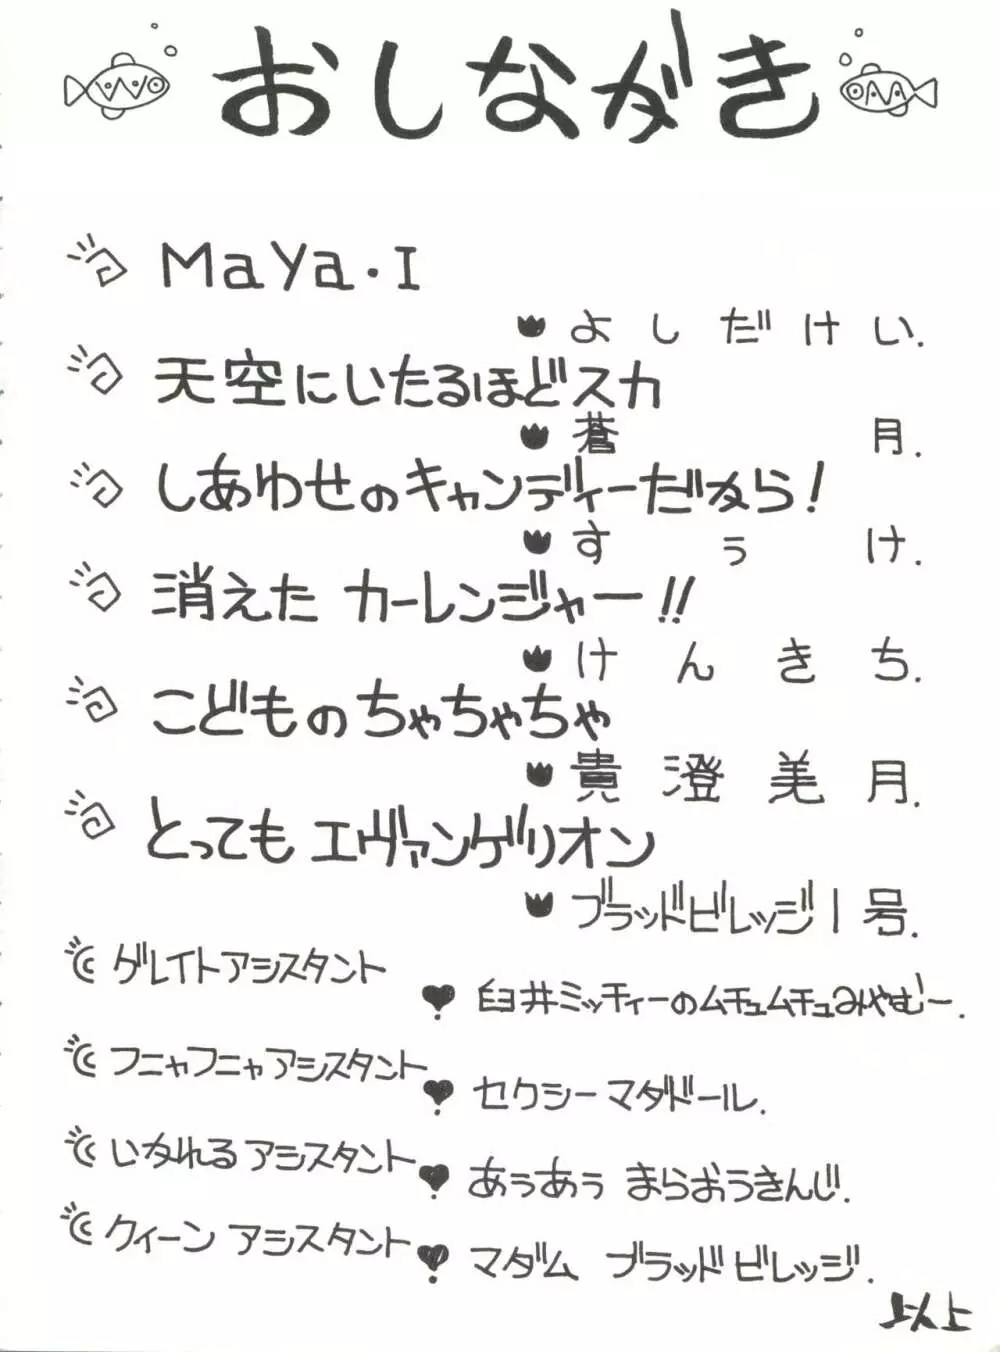 おしながき
MaYa・I
よしだけい.
天空にいたるほどスカ
蒼月.
しあわせのキャンディーだから!
すぅけ.
消えた カーレンジャー!!
けんきち.
こどものちゃちゃちゃ
貴澄美月.
とっても エヴァンゲリオン
ブラッドビレッジ1号.
グレイトアシスタント
臼井ミッチィーのムチュムチュみやむー.
フニャフニャアシスタント
セクシーマタドール.
いかれる アシスタント
あぅあぅ まらおうきんじ.
クィーン アシスタント
マダム ブラッドビレッジ.
以上